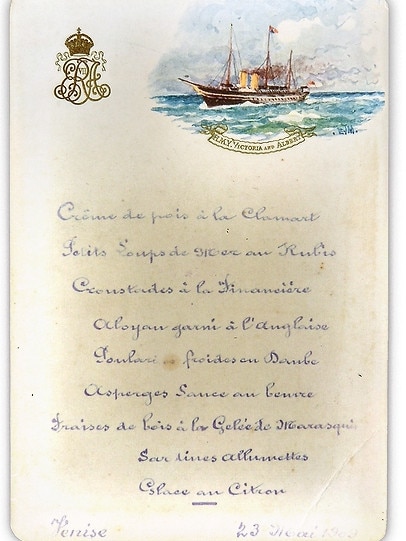 H.M.Y. VICTORIA AND ALBERT
Crême de pois à la Clamart
Petits Loups de Mer au Rubis
Croustades à la Financiére
Aloyau garni à l'Anglaise
froides en Daube
Asperges Sauce au beurre
Fraises de bois à la Gelée de Marasqui
Sardines Allumettes
Glace au Citron
Venise
23 Mai 1909